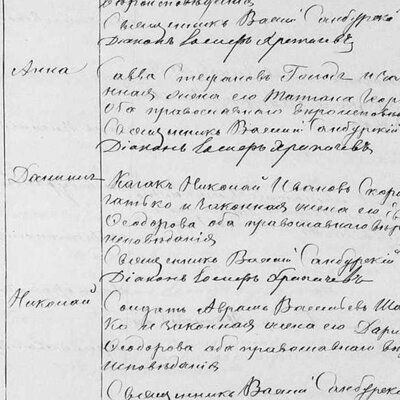 вероисповѣданія
Священникъ Василій Санбурскій
Діаконъ Іосифъ
Анна
Савва Стефановъ и за-
конная жена его Татіана Геор
оба православнаго вѣроисповѣд
Священникъ Василій Санбурскій
Діаконъ Іосифъ
Даніилъ
Казакъ Николай Ивановъ Скоро
гатько и законная жена его
Ѳеодорова оба православнаго вѣро
исповѣданія
Священникъ Василій Санбурскій
Діаконъ Іосифъ
Николай
Солдатъ Аврамъ Васильевъ Ша
ко и законная жена его Дарія
Ѳеодорова оба православнаго вѣ
исповѣданія
Священникъ Василій Санбурскій